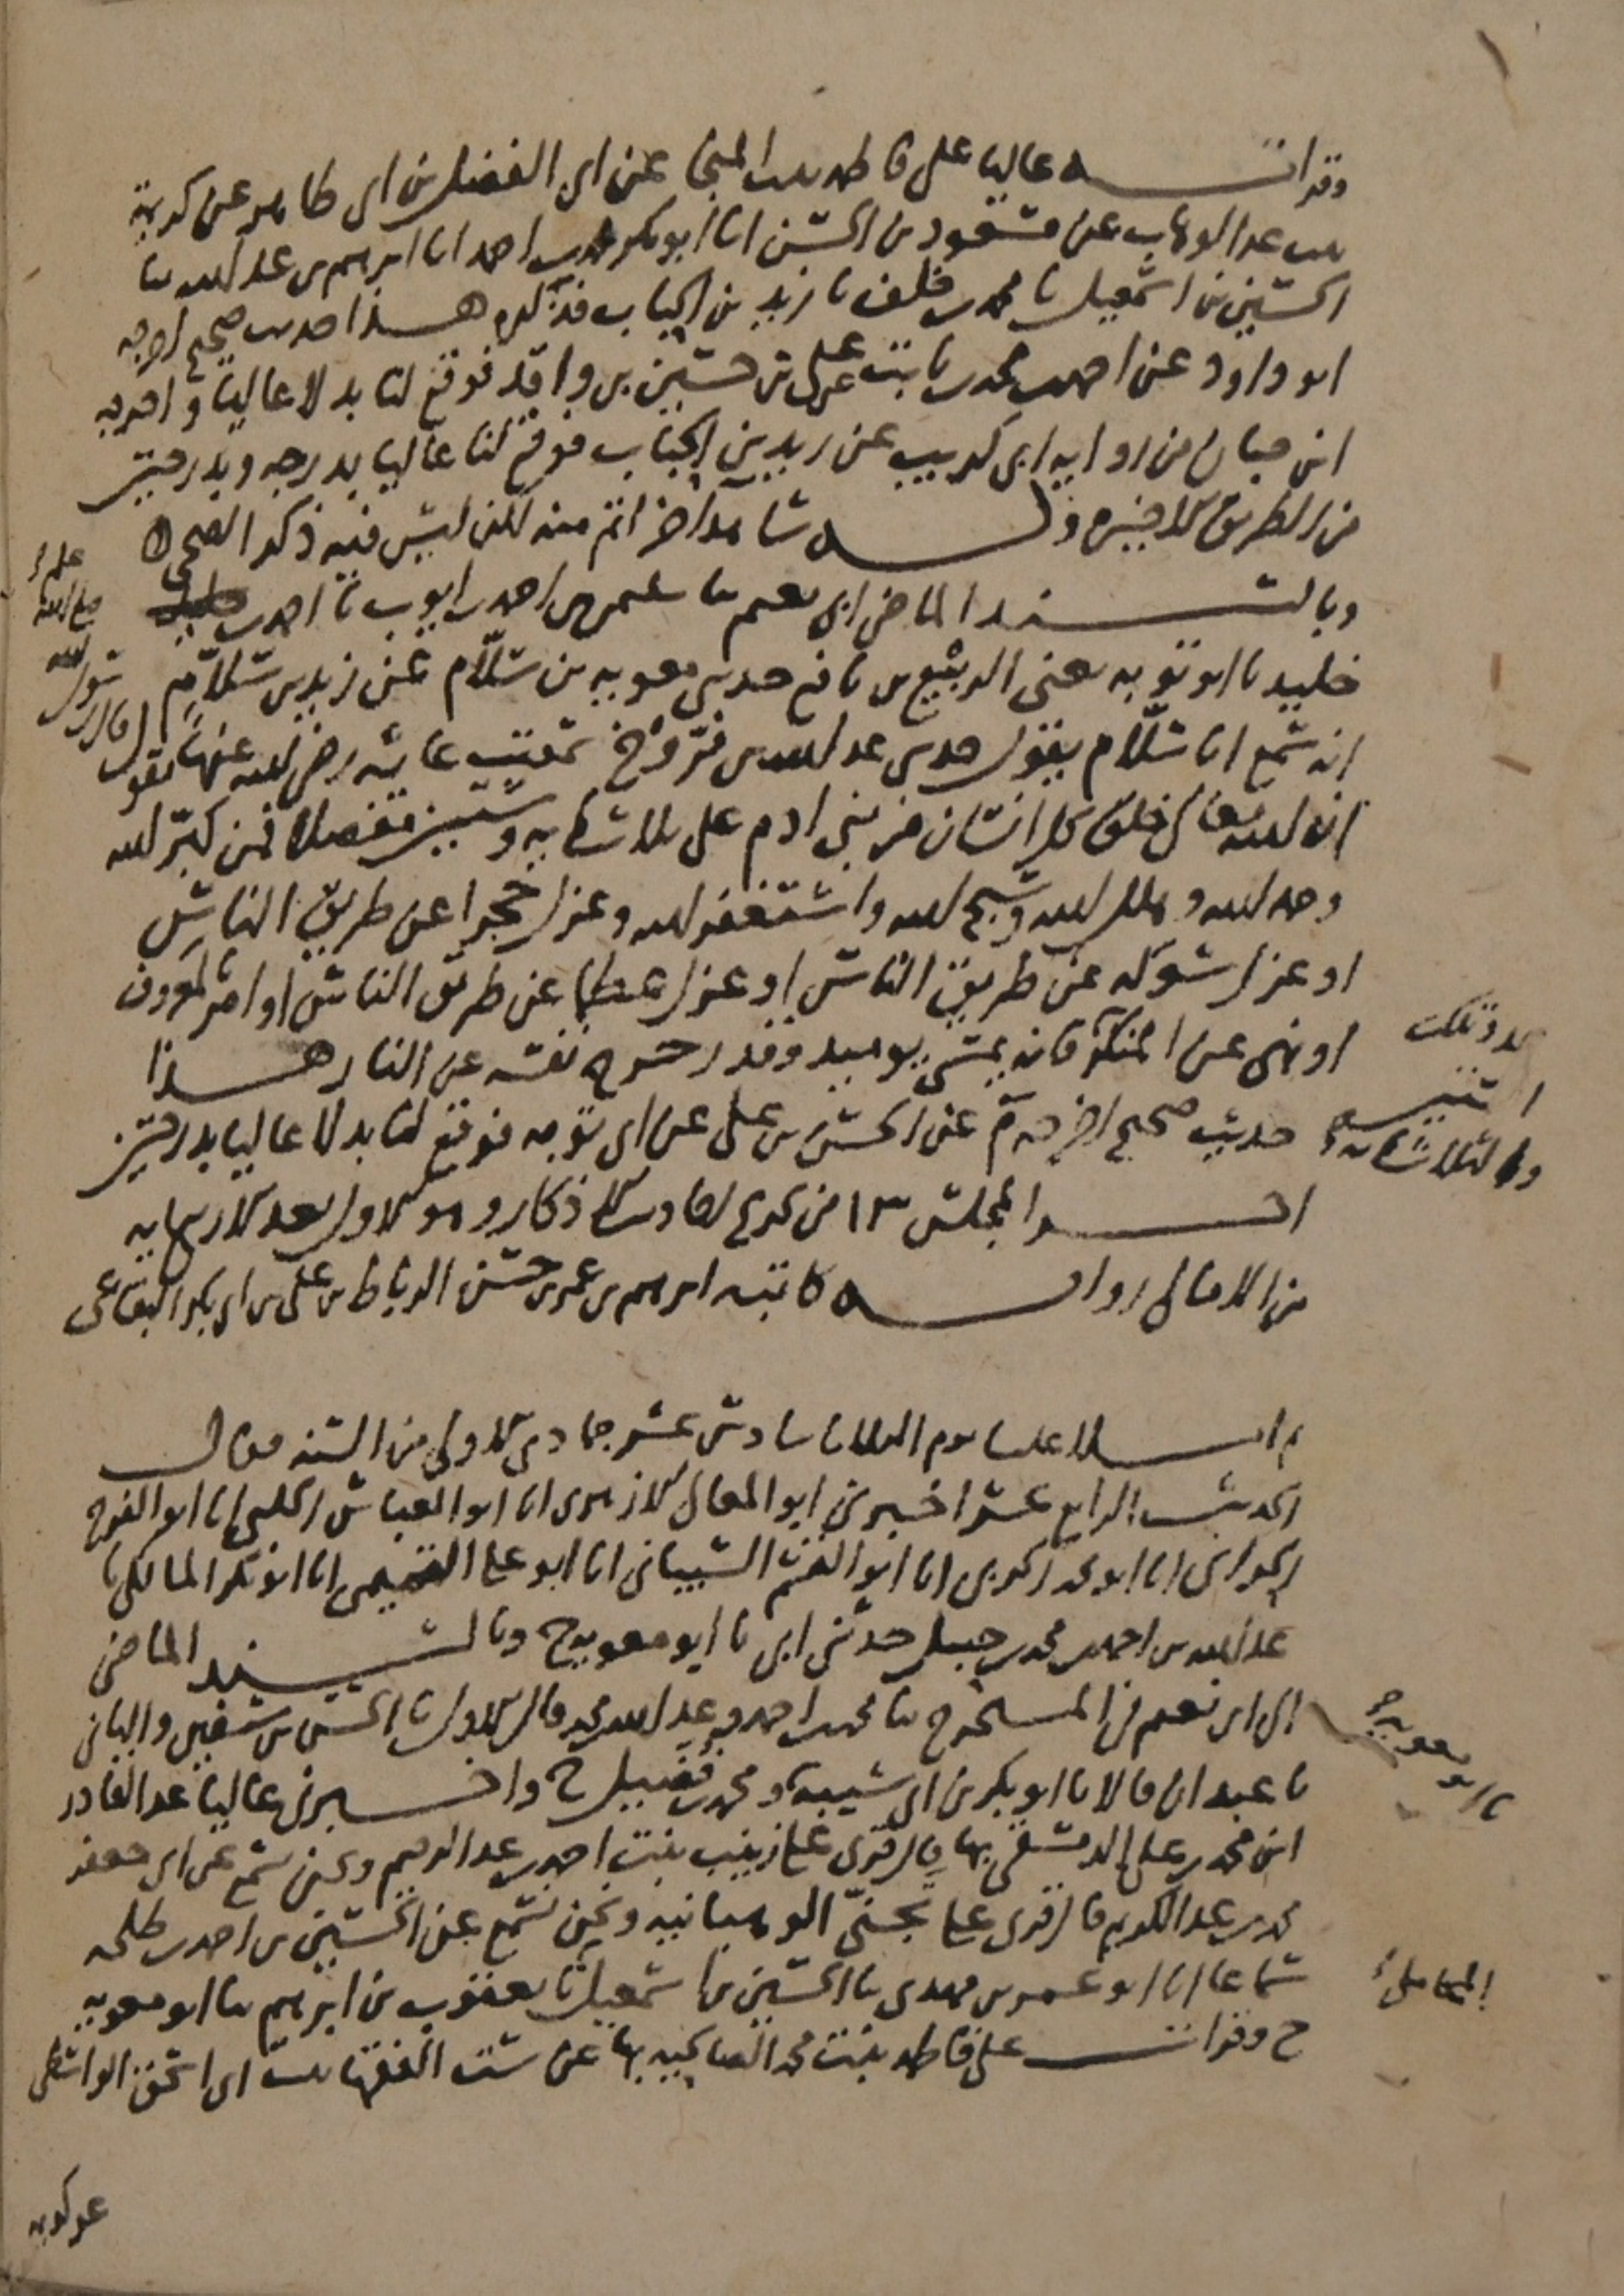 وقراته عاليا على فاطمة بنت المنجا عن ابي الفضل بن ابي طاهر عن كريمة
بنت عبد الوهاب عن مسعود بن الحسن انا ابو بكر محمد بن احمد انا ابرهيم بن عبد الله نا
الحسين بن اسمعيل نا محمد بن خلف نا زيد بن الحباب فذكره هذا حديث صحيح اخرجه
ابو داود عن احمد بن محمد بن ثابت عن علي بن حسين بن واقد فوقع لنا بدلا عاليا واخرجه
ابن حبان من رواية ابي كريب عن زيد بن الحباب فوقع لنا عاليا بدرجة وبدرجتين
من الطريق الاخيرة وله شاهد اخر اتم منه لكن ليس فيه ذكر الضحى
وبالسند الماضي الى ابي نعيم نا عمر بن احمد بن ايوب نا احمد بن
خليد نا ابو توبه يعني الربيع بن نافع حدثني معويه بن سلّام عن زيد بن سلّام
انه سمع ابا سلّام يقول حدثني عبد الله بن فرّوخ سمعت عائشه رضي الله عنها تقول قال رسول الله صلى الله عليه
ان الله تعالى خلق كل انسان من بني ادم على ثلاثمايه وستين مفصلا فمن كبّر الله
وحمد الله وهلل الله وسبح الله واستغفر الله وعزل حجرا عن طريق الناس
او عزل شوكه عن طريق الناس او عزل عظما عن طريق الناس او امر بمعروف
او نهى عن المنكر عدد تلك الستين والثلاثمايه فانه يمسي يوميذ وقد زحزح نفسه عن النار هذا
حديث صحيح اخرجه م عن الحسن بن علي عن ابي توبه فوقع لنا بدلا عاليا بدرجتين
اخر المجلس ١٣ من تخريج احاديث الاذكار وهو الاول بعد الاربعمايه
من الامالي رواية كاتبه ابرهيم بن عمر بن حسن الرباط بن علي بن ابي بكر البقاعي
ثم املا علينا يوم الثلاثا سادس عشر جمادى الاولى من السنه فقال
الحديث الرابع عشر اخبرني ابو المعالي الازهري انا ابو العباس الحلبي انا ابو الفرج
الحراني انا ابو محمد الحربي انا ابو القسم الشيباني انا ابو علي التميمي انا ابو بكر المالكي نا
عبد الله بن احمد بن محمد بن حنبل حدثني ابي نا ابو معويه ح وبالسند الماضي
الى ابي نعيم في المستخرج نا محمد بن احمد وعبد الله بن محمد قال الاول نا الحسن بن سفين والثاني
نا عبدان قالا نا ابو بكر بن ابي شيبه نا ابو معويه ومحمد بن فضيل ح واخبرني عاليا عبد القادر
ابن محمد بن علي الدمشقي بها قال قرئ على زينب بنت احمد بن عبد الرحيم ونحن نسمع عن ابي جعفر
محمد بن عبد الكريم قال قرئ على تجنّي الوهبانيه ونحن نسمع عن الحسين بن احمد بن طلحه
سماعا انا ابو عمر بن مهدي نا الحسين بن اسمعيل المحاملي نا يعقوب بن ابرهيم نا ابو معويه
ح وقرات على فاطمه بنت محمد الصالحيه بها عن ست الفقها بنت ابي اسحق الواسطي
عن كريمه